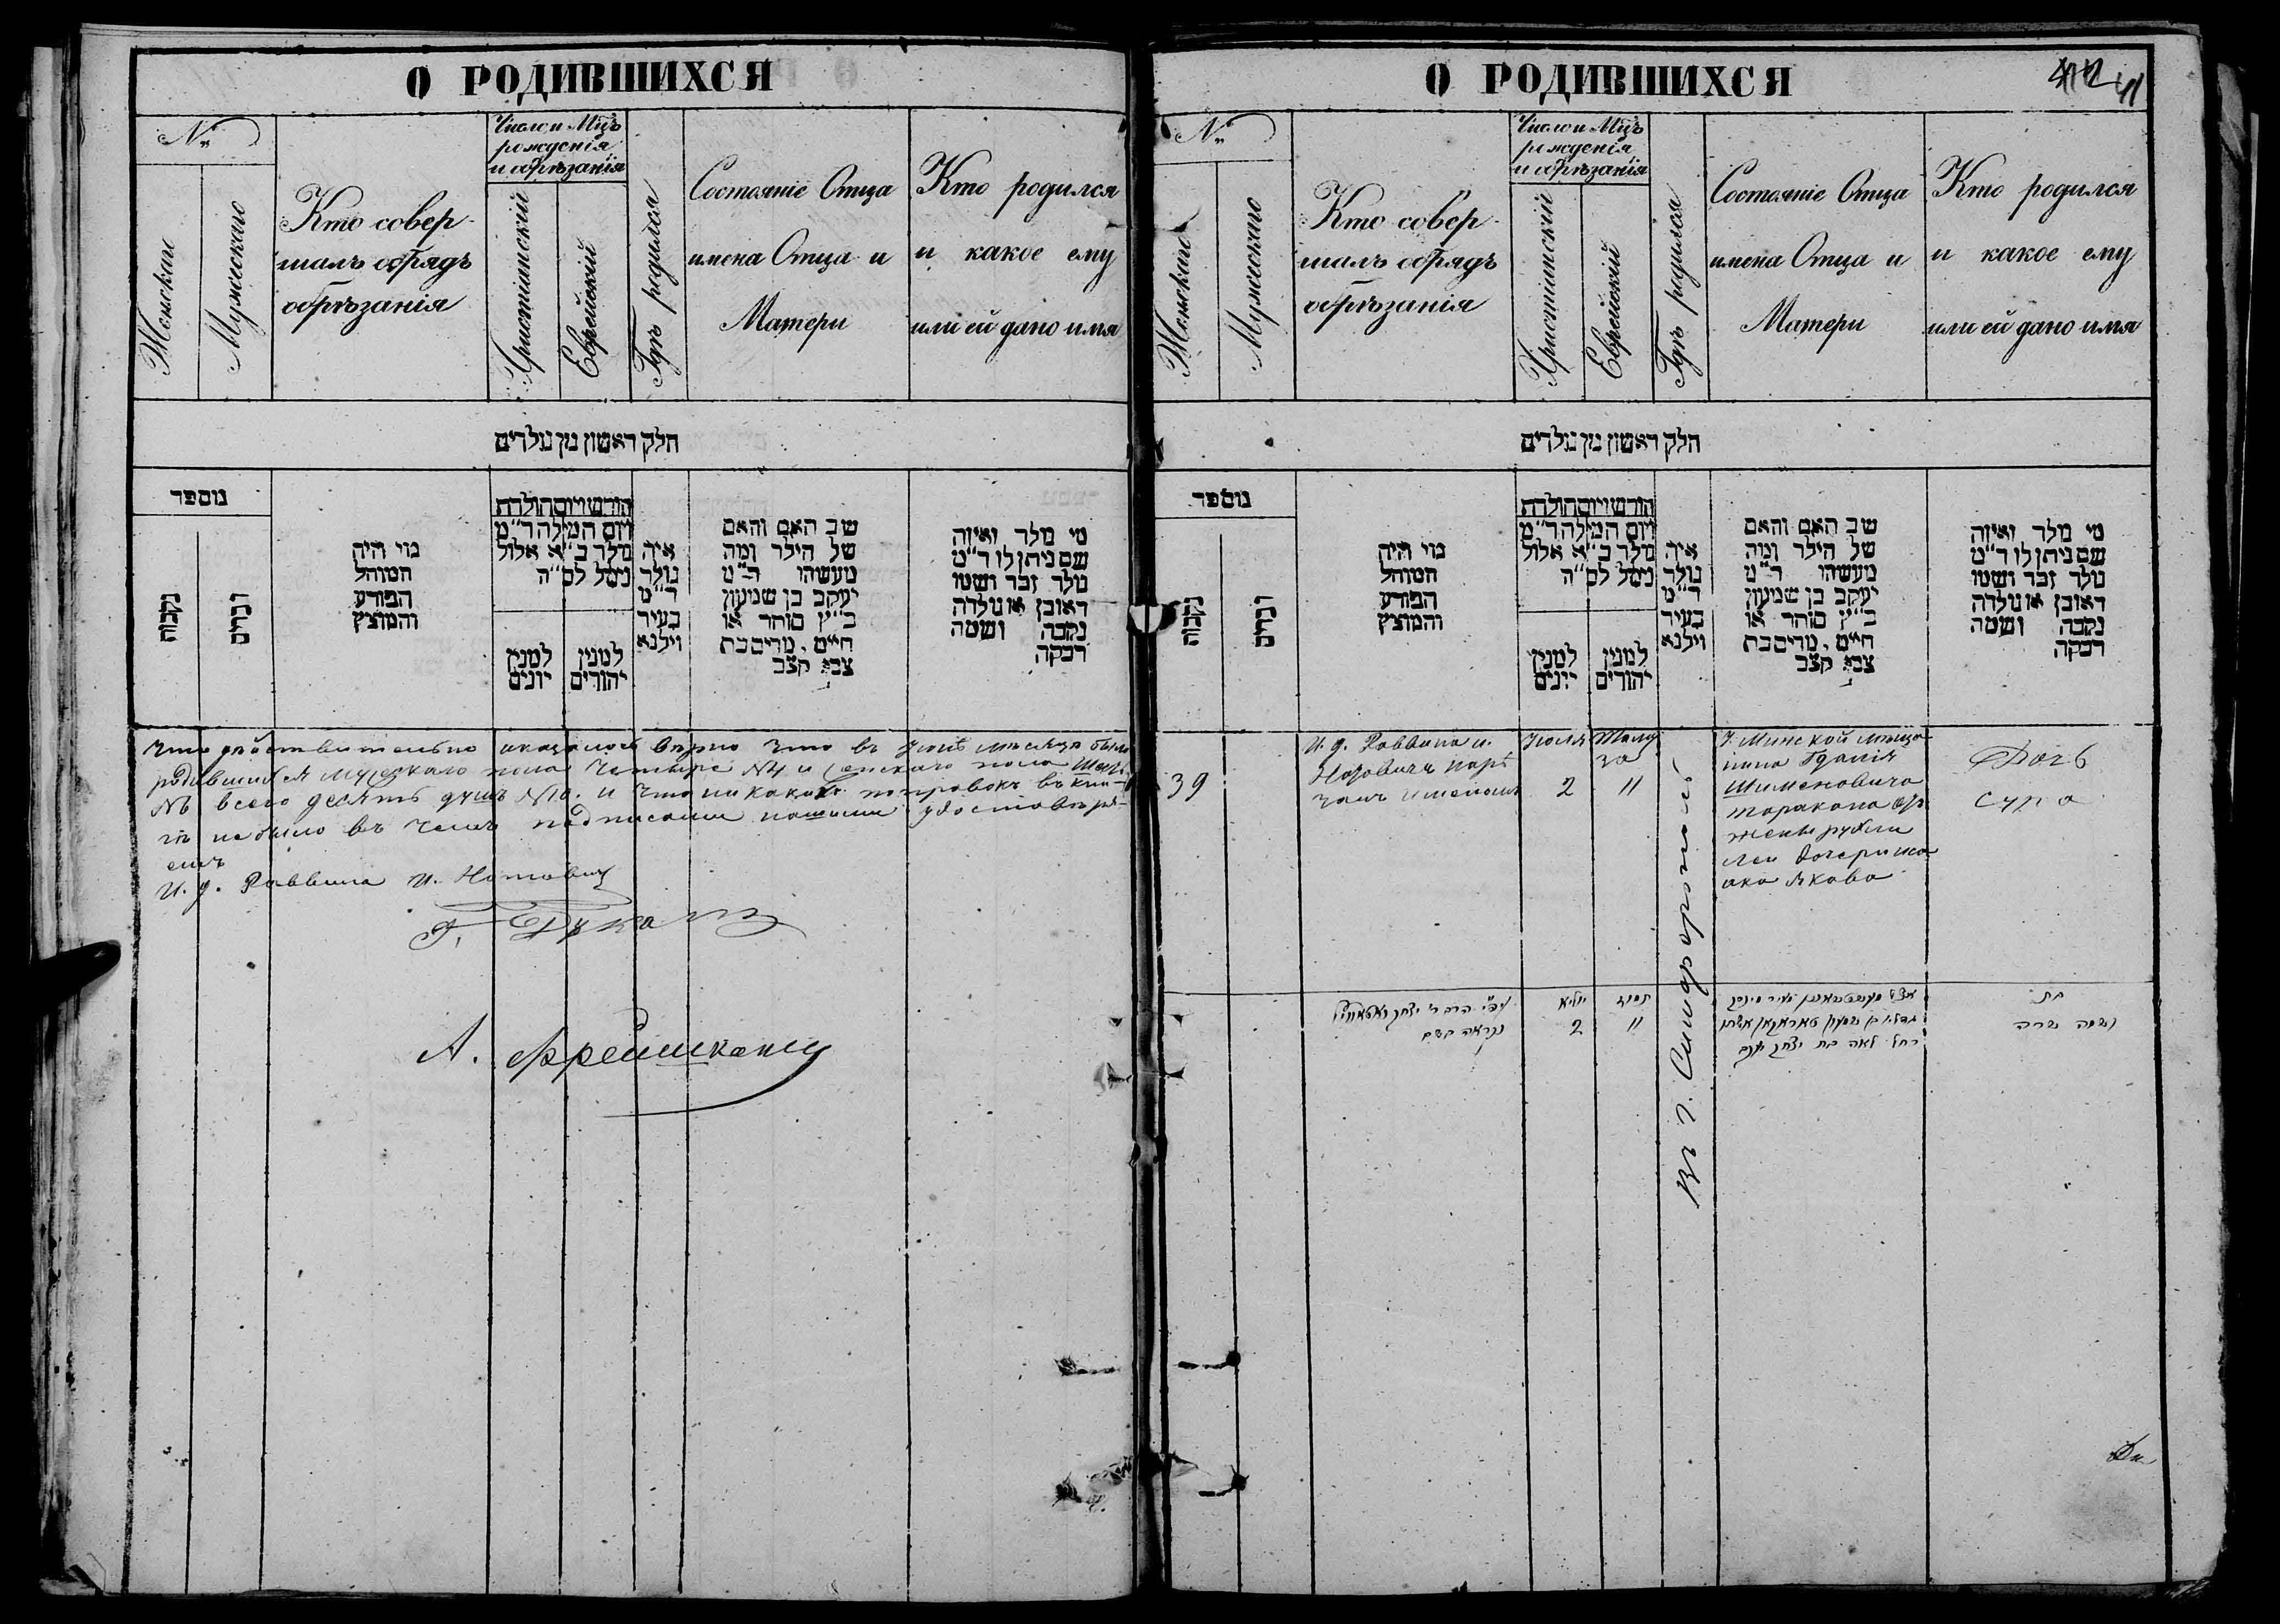 О РОДИВШИХСЯ
№
Женскаго
Мужескаго
Кто совер-
шалъ обрядъ
обрѣзанія
Число и Мцъ
рожденія
и обрѣзанія
Христіанскій
Еврейскій
Гдѣ родился
Состояніе Отца
имена Отца и
Матери
Кто родился
и какое ему
или ей дано имя
חלק ראשון מן נולדים
מספר
נקבות
זכרים
מי היה
המוהל
הפורע
והמוצץ
חודש ויום הולדת
ויום המילה ד״מ
נולד כ״א אלול
נימל לס״ה
למנין
יונים
למנין
יהודים
איה
נולד
ד״מ
בעיר
ווילנא
שב האם והאם
של הילד ומה
מעשהו ד״מ
יעקב בן שמעון
כ״ץ סוחר או
חייט, מרים בת
צבי קצב
מי נולד ואיזה
שם ניתן לו ד״מ
נולד זכר ושמו
ראובן או נולדה
נקבה ושמה
רבקה
что действительно оказалось верно что въ Іюнѣ мѣсяца было
родившихся мужскаго пола четыре №4 и женскаго пола шесть
№6 всего десять душъ №10. и что никакихъ поправокъ въ кни-
гѣ не было въ чемъ подписами нашими удостовѣря-
емъ
И. д. Раввина И. Нотович
А. Фрейшканд
О РОДИВШИХСЯ
41
№
Женскаго
Мужескаго
Кто совер-
шалъ обрядъ
обрѣзанія
Число и Мцъ
рожденія
и обрѣзанія
Христіанскій
Еврейскій
Гдѣ родился
Состояніе Отца
имена Отца и
Матери
Кто родился
и какое ему
или ей дано имя
חלק ראשון מן נולדים
מספר
נקבות
זכרים
מי היה
המוהל
הפורע
והמוצץ
חודש ויום הולדת
ויום המילה ד״מ
נולד כ״א אלול
נימל לס״ה
למנין
יונים
למנין
יהודים
איה
נולד
ד״מ
בעיר
ווילנא
שב האם והאם
של הילד ומה
מעשהו ד״מ
יעקב בן שמעון
כ״ץ סוחר או
חייט, מרים בת
צבי קצב
מי נולד ואיזה
שם ניתן לו ד״מ
נולד זכר ושמו
ראובן או נולדה
נקבה ושמה
רבקה
39
И. д. Раввина И.
Нотовичъ наре
чалъ именемъ
Іюля
2
Таму
за
11
Въ г. Симферополѣ
Г. Минской мѣща
нина Гдалія
Шименовича
таракана отъ
жены рухли
леи дочери иса
ака Якова
Дочь
Сура
נקראה בשם
יוליא
2
תמוז
11
גדליה בן שמעון טאראקאן אשתו
רחל לאה בת יצחק יעקב
בת
ושמה שרה